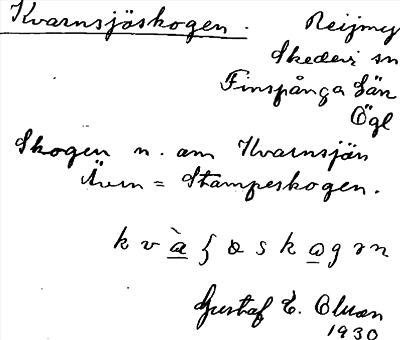 Kvarnsjöskogen. Reijmy
Skedevi sn
Finspånga län
Ögl
Skogen n. om Kvarnsjön
Även = Stampeskogen.
Gustaf E. Olsson
1930